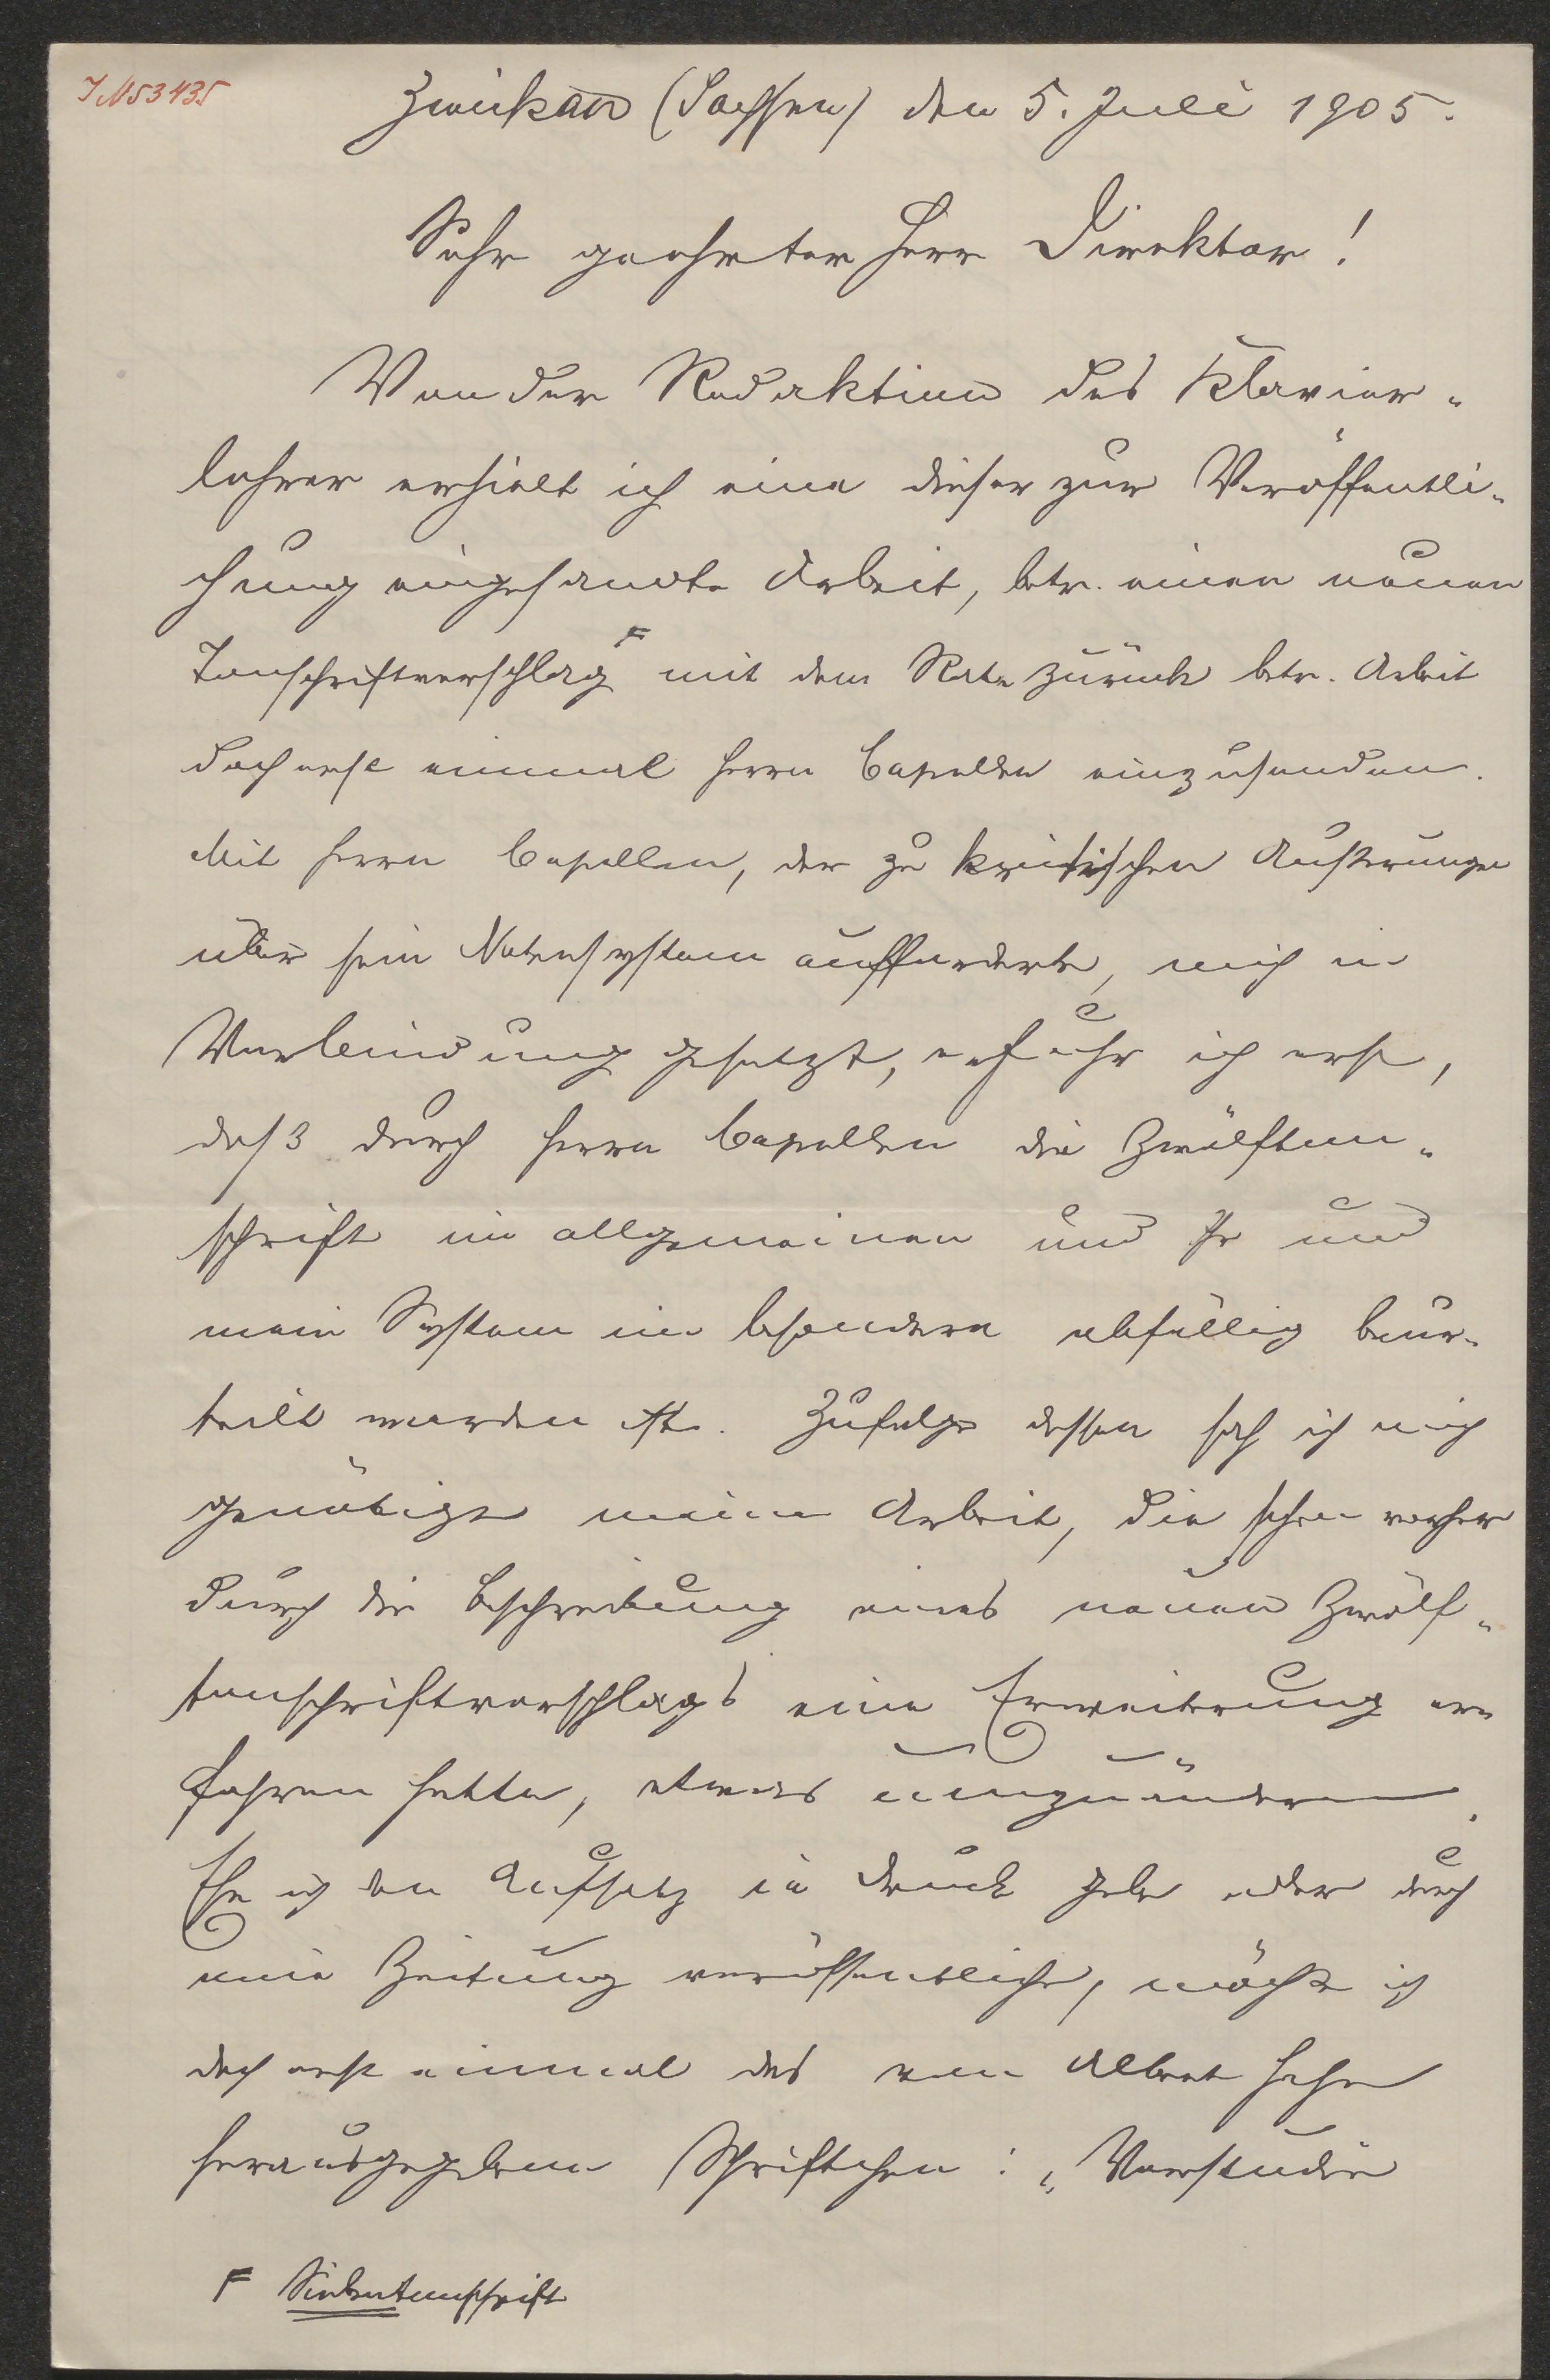 IN 53435
Zwickau (Sachsen) den 5. Juli 1905.
Sehr geehrter Herr Direktor!
Von der Redaktion des Klavier-
lehrer erhielt ich eine dieser zur Veröffentli-
chung eingesandte Arbeit, betr. einen neuen
Tonschriftvorschlag F mit dem Rate zurück betr. Arbeit
doch erst einmal Herrn Capellen einzusenden.
Mit Herrn Capellen, der zu kritischen Äußerungen
über sein Notensystem aufforderte, mich in
Verbindung gesetzt, erfuhr ich erst,
daß durch Herrn Capellen die Zwölfton-
schrift im allgemeinen und Ihr und
mein System im besondern abfällig beur-
teilt worden ist. Zufolge dessen sah ich mich
genötigt meine Arbeit, die schon vorher
durch die Beschreibung eines neuen Zwölf-
tonschriftvorschlags eine Erweiterung er-
fahren hatte, etwas umzuändern.
Ehe ich den Aufsatz in Druck gebe oder durch
eine Zeitung veröffentliche, möchte ich
doch erst einmal das von Albert Hahn
herausgegebene Schriftchen: „Vorstudie
F Siebentonschrift